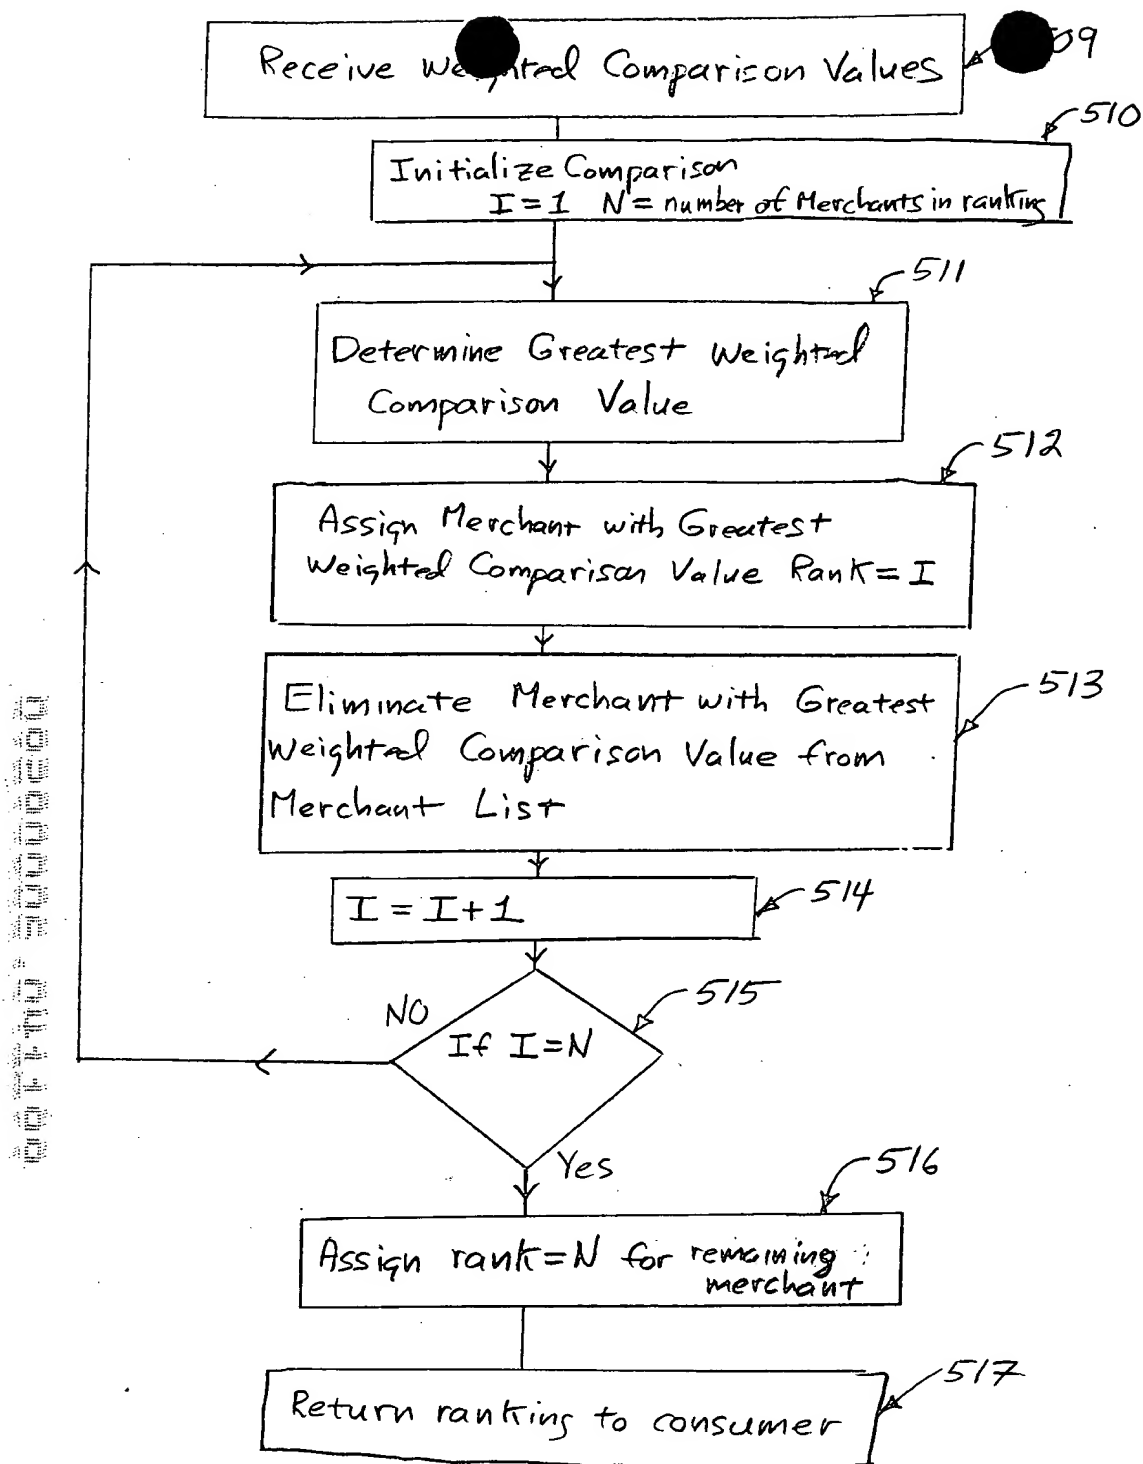 Receive Weighted Comparison Values
09
510
Initialize Comparison
I = 1 N = number of Merchants in ranking
511
Determine Greatest Weighted
Comparison Value
512
Assign Merchant with Greatest
Weighted Comparison Value Rank = I
513
Eliminate Merchant with Greatest
Weighted Comparison Value from
Merchant List
514
I = I + 1
515
NO
If I = N
Yes
516
Assign rank = N for remaining
merchant
517
Return ranking to consumer